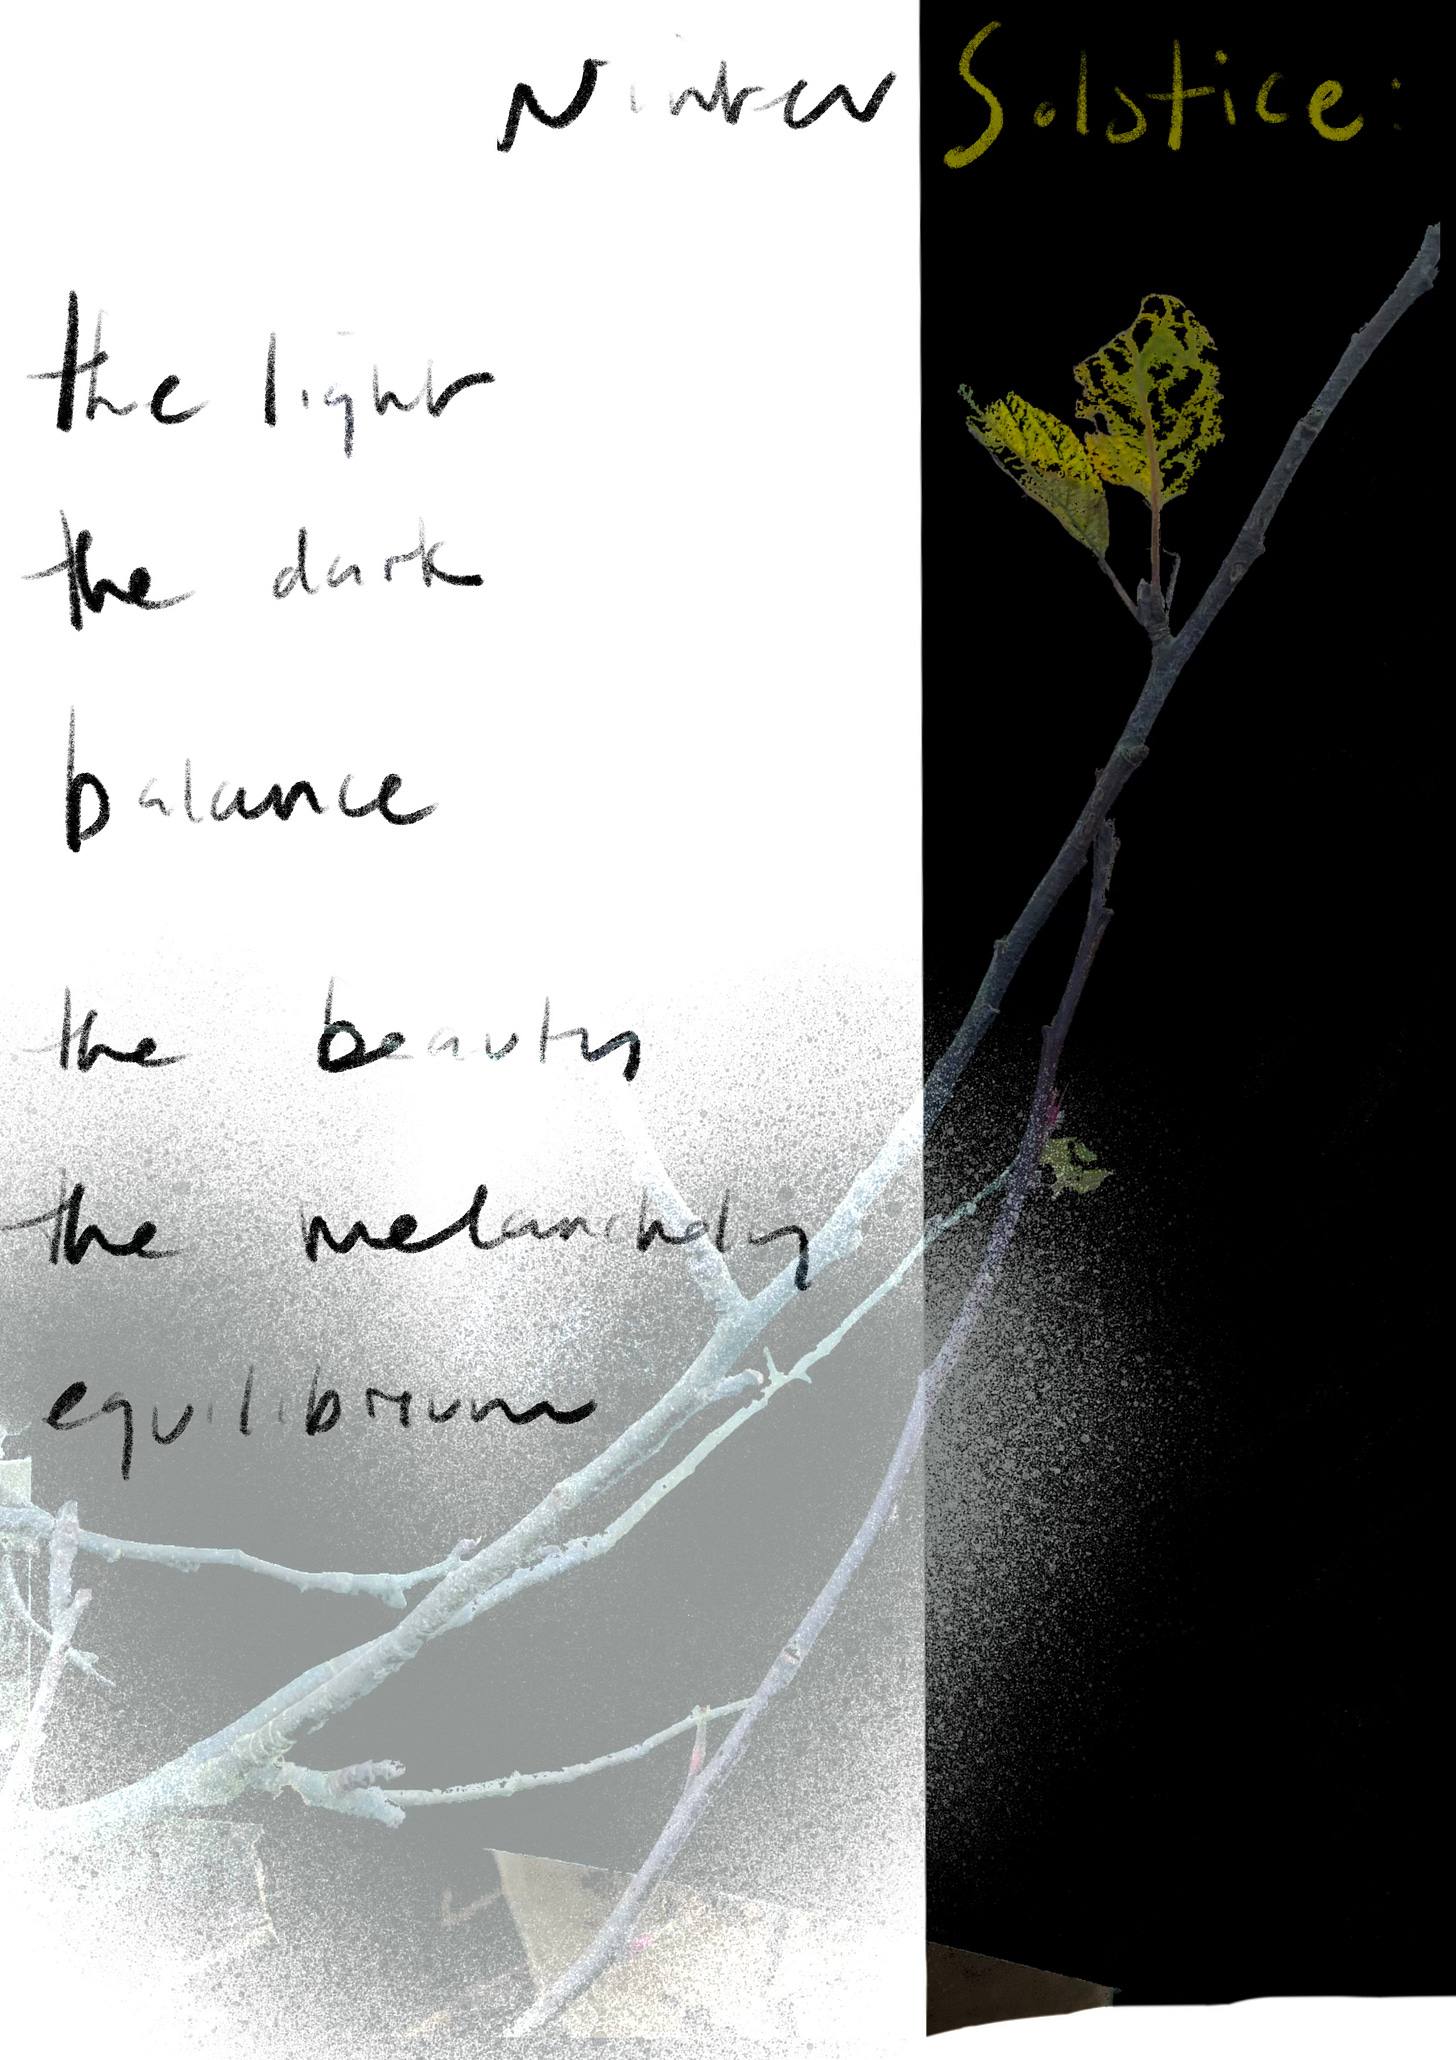 Winter Solstice:
the light
the dark
balance
the beauty
the melancholy
equilibrium